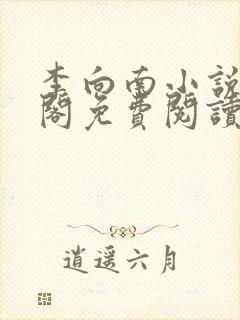 李向南小説
閣免費閱讀
逍遥六月